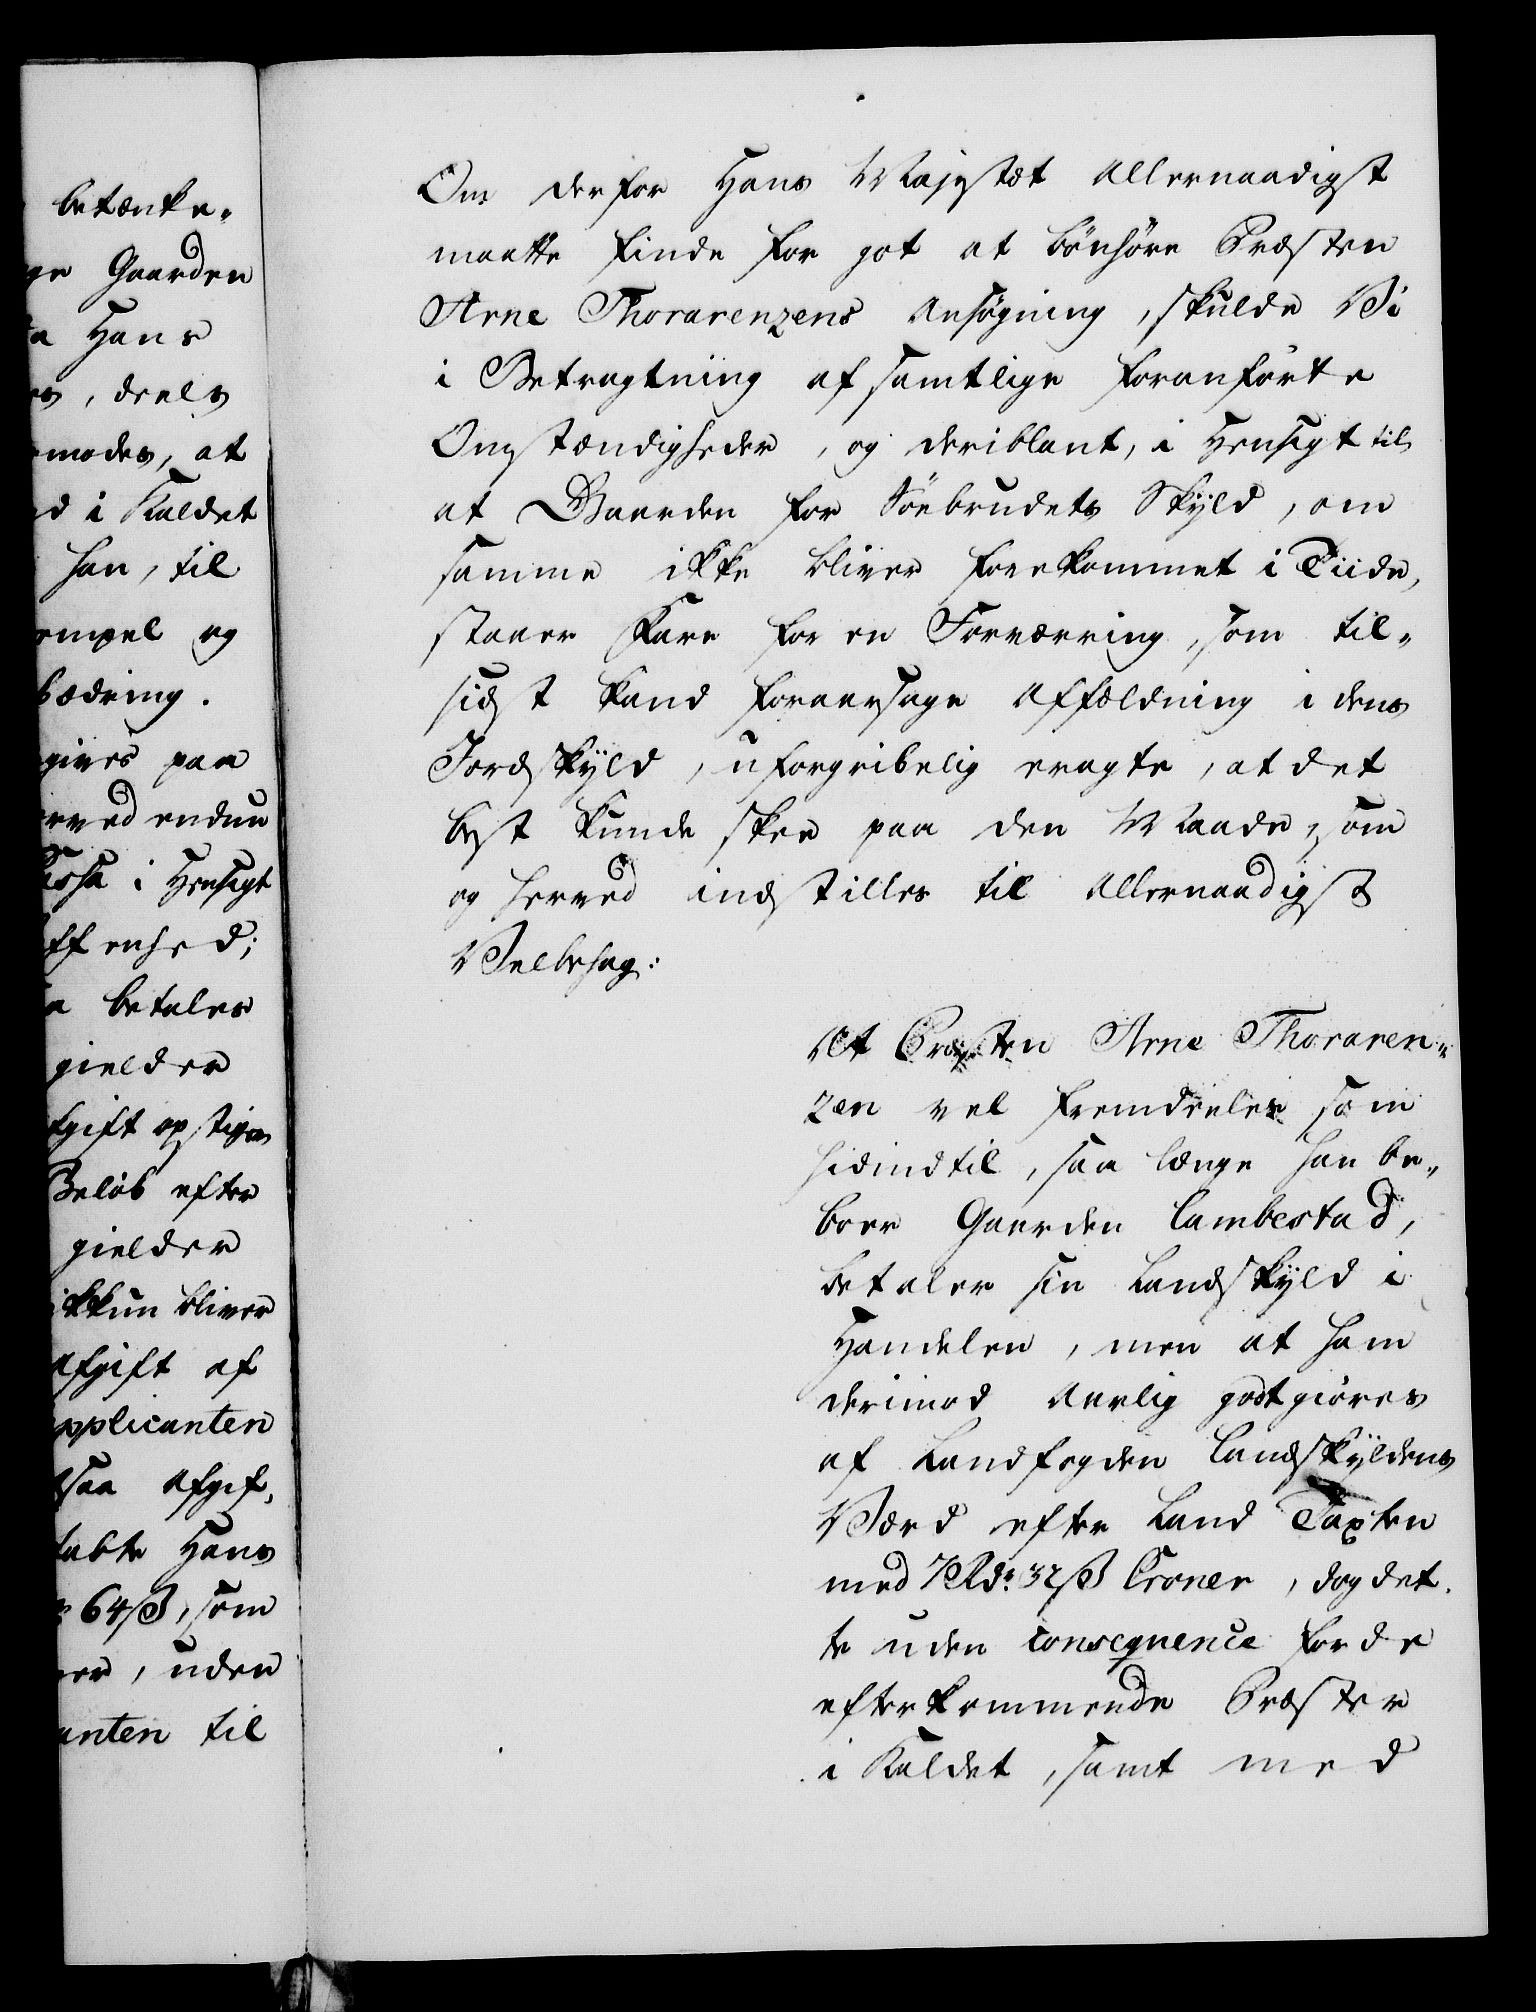 betænke„
ge Gaarden
a Hans
es, deels
modes, at
d i Kaldet
han, til
empel og
bædring.
gives paa
rved endnu
Cassa i Hensigt
ffenhed;
a betales
gielder
fgift opstiger
Beløb efter
gielder
ikkun bliver
Afgift af
pplicanten
saa Afgif„
tabte Hans
64 ß, som
er, uden
anten til
Om derfor Hans Majestæt allernaadigst
maatte finde for got at bönhöre Præsten
Arne Thorarenzens Ansøgning, skulde Vi
i Betragtning af samtlige foranförte
Omstændigheder, og deriblant, i Hensigt til
at Gaarden for Söebrudets Skÿld, om
samme ikke bliver forekommet i Tiide,
staaer Fare for en Forværring, som til„
sidst kand foraarsage Affældning i dens
Jordskÿld, uforgribelig eragte, at det
best kunde skee paa den Maade, som
og herved indstilles til allernaadigst
Velbehag:
At Præsten Arne Thoraren„
zen vel fremdeeles som
hidindtil, saa længe han be„
boer Gaarden Lambestad,
betaler sin Landskÿld i
Handelen, men at ham
derimod aarlig godtgiøres
af Landfogden Landskÿldens
Værd efter Land Taxten
med 7 Rdr 32 ß Croner, dog det„
te uden consequence for de
efterkommende Præster
i Kaldet, samt med